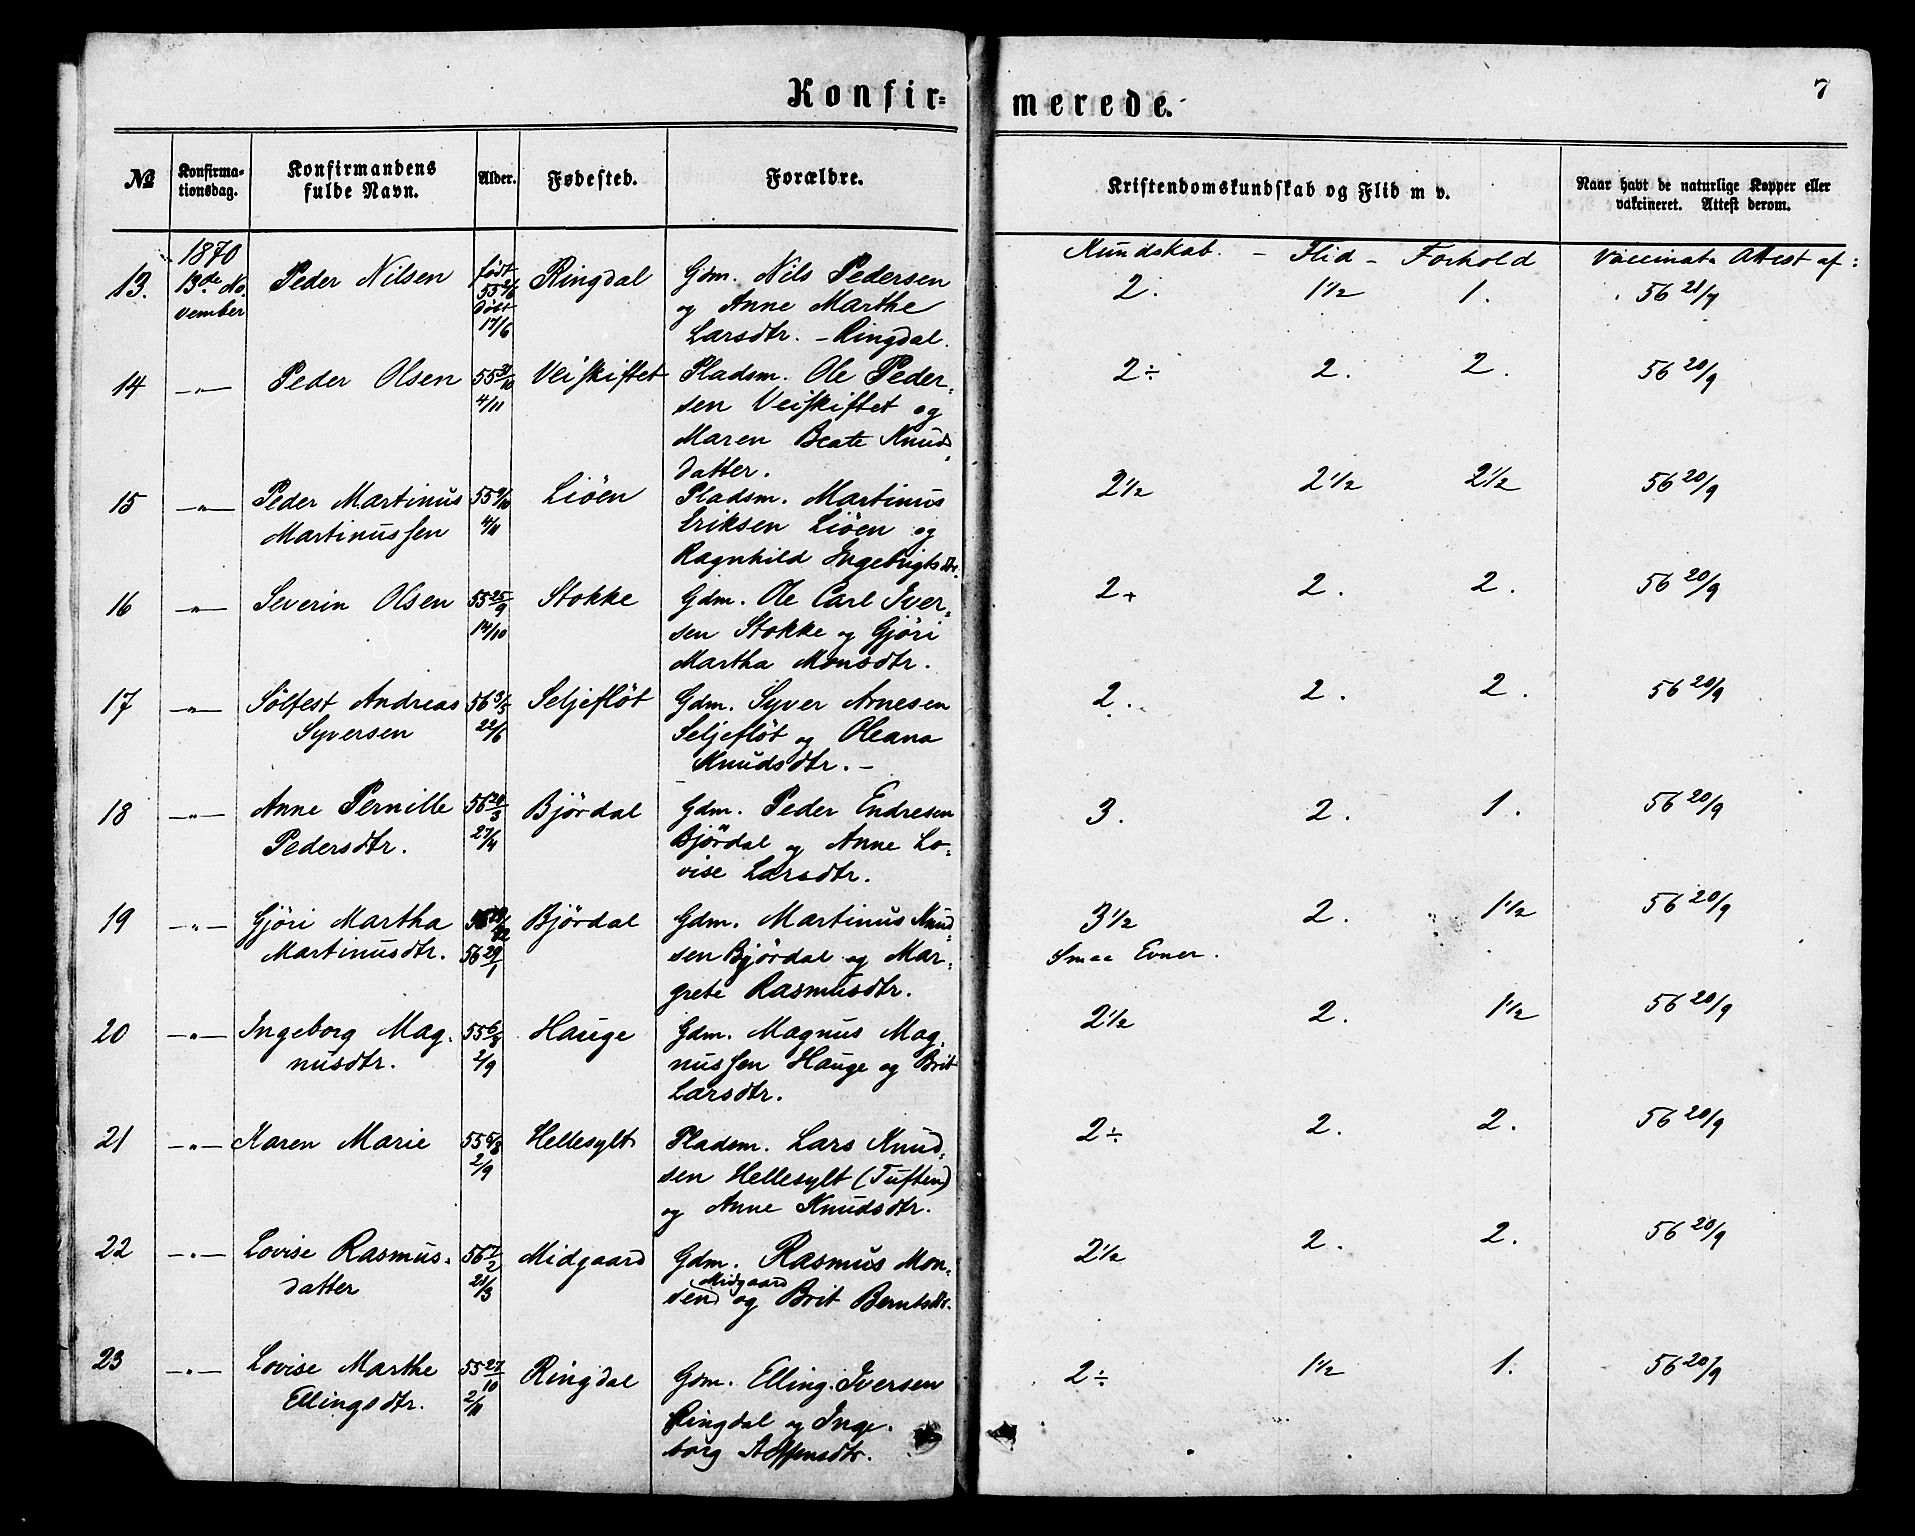 Konfir=
merede.
7
No
Konfirma=
tionsdag.
Konfirmandens
fulde Navn.
Alder.
Fødested.
Forældre.
Kristendomskundskab og Flid m v.
Naar havt de naturlige Kopper eller
vakcineret. Attest derom.
Kundskab. - Flid - Forhold
Vaccinat. Attest af:
13.
1870
13de No-
vember
Peder Nilsen
født
døbt
17/6
Ringdal
Gdm. Nils Pedersen
og Anne Marthe
Larsdtr. - Ringdal.
2.
1 1/2
1.
56
14
-"-
Peder Olsen
55
4/11
Veiskiftet
Pladsm. Ole Peder-
sen Veiskiftet og
Maren Beate Knuds
datter.
2÷
2.
2.
56 20/9
15
-"-
Peder Martinus
Martinussen
55
4/11
Liöen
Pladsm. Martinus
Eriksen Liöen og
Ragnhild Ingebrigtsdtr.
2 1/2
2 1/2
56 20/9
16
-"-
Severin Olsen
55 25/9
14/10
Stokke
Gdm. Ole Carl Iver-
sen Stokke og Gjöri
Martha Monsdtr.
2+
2.
2.
56 20/9
17
-"-
Sölfest Andreas
Syversen
56 3/5
22/6
Seljeflöt
Gdm. Syver Arnesen
Seljeflöt og Oleana
Knudsdtr. -
2.
2.
2.
56 20/9
18
-"-
Anne Pernille
Pedersdtr.
56
27/4
Björdal
Gdm. Peder Endresen
Björdal og Anne Lo-
vise Larsdtr.
3.
2.
1.
56 20/9
19
-"-
Gjöri Martha
Martinusdtr.
56 29/1
Björdal
Gdm. Martinus Knud-
sen Björdal og Mar-
grete Rasmusdtr.
3 1/2
Smaa Evner.
2.
1 1/2
56 20/9
20
-"-
Ingeborg Mag-
nusdtr.
55 6/8
2/9
Hauge
Gdm. Magnus Mag-
nussen Hauge og Brit
Larsdtr.
2 1/2
2.
1 1/2
56 20/9
21
-"-
Karen Marie
55
2/9
Hellesylt
Pladsm. Lars Knud-
sen Hellesylt (Tuften)
og Anne Knudsdtr.
2÷
2.
2.
56 20/9
22
-"-
Lovise Rasmus-
datter
56 7/2
Midgaard
Gdm. Rasmus Mon-
Midgaard
sen og Brit Berntsdtr.
2 1/2
2.
2.
56 20/9
23
-"-
Lovise Marthe
Ellingsdtr.
55 27/10
2/11
Ringdal
Gdm. Elling Iversen
Ringdal og Inge-
borg Steffensdtr.
2÷
1 1/2
1.
56 20/9